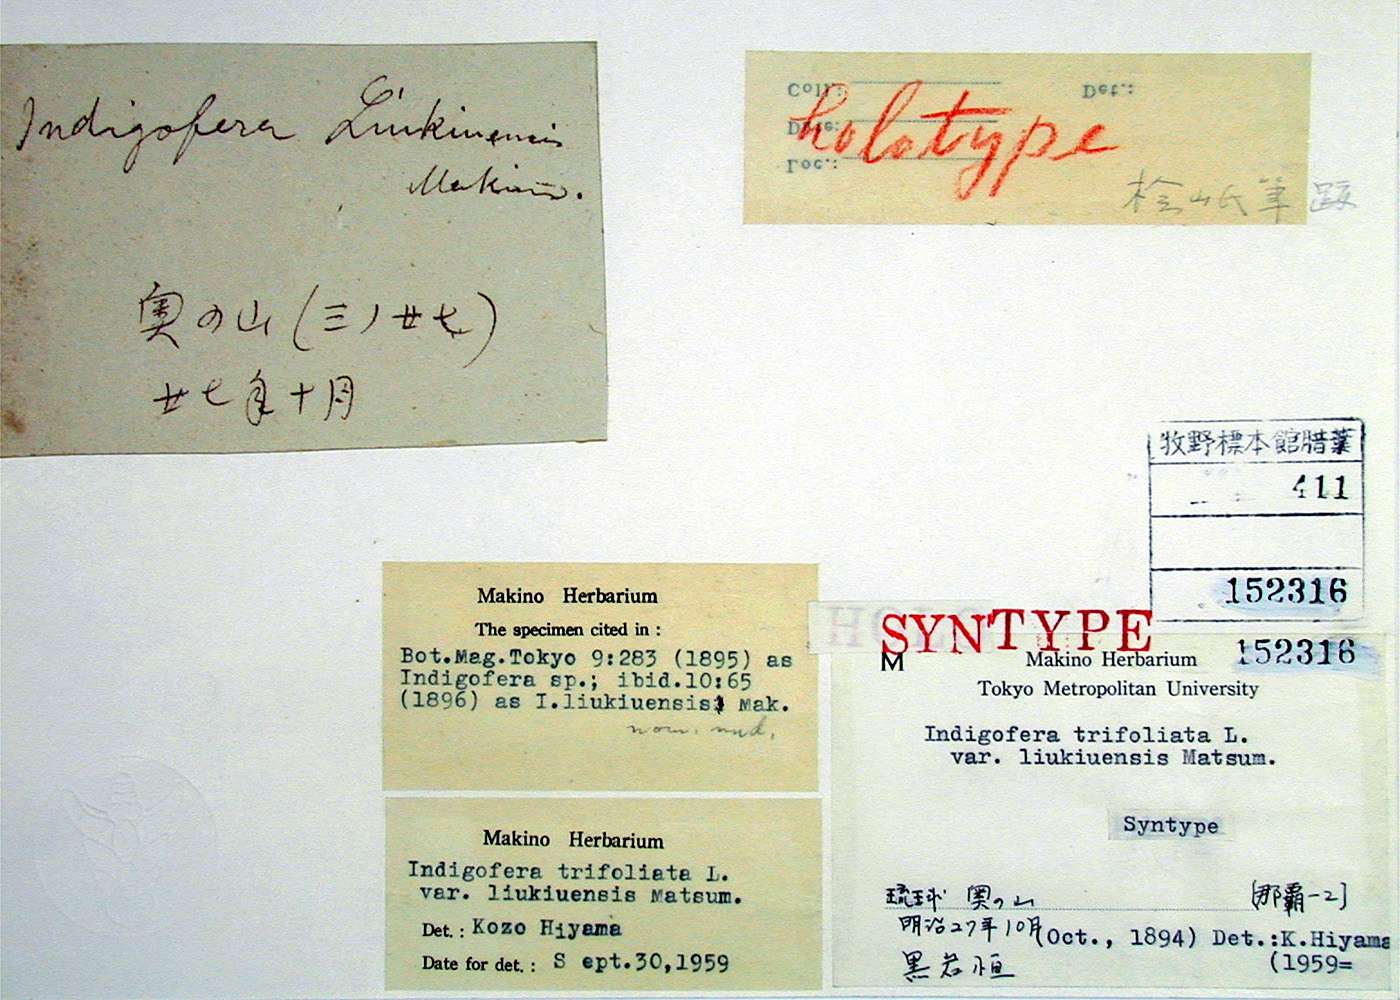 Indigofera Liukiuensis
Makino.
奥の山(三ノ廿七)
廿七年十月
Coll.: Det.:
Date:
Loc.:
holotype
桧山氏筆跡
牧野標本館腊葉
411
152316
Makino Herbarium
The specimen cited in :
Bot.Mag.Tokyo 9:283 (1895) as
Indigofera sp.; ibid.10:65
(1896) as I.liukiuensis Mak.
nom. nud.
HOLO
SYNTYPE
M
152316
Makino Herbarium
Tokyo Metropolitan University
Indigofera trifoliata L.
var. liukiuensis Matsum.
Syntype
琉球 奥の山 [那覇-2]
明治27年10月(Oct., 1894) Det.:K.Hiyama
黒岩恒 (1959=
Makino Herbarium
Indigofera trifoliata L.
var. liukiuensis Matsum.
Det.: Kozo Hiyama
Date for det.: S ept.30,1959